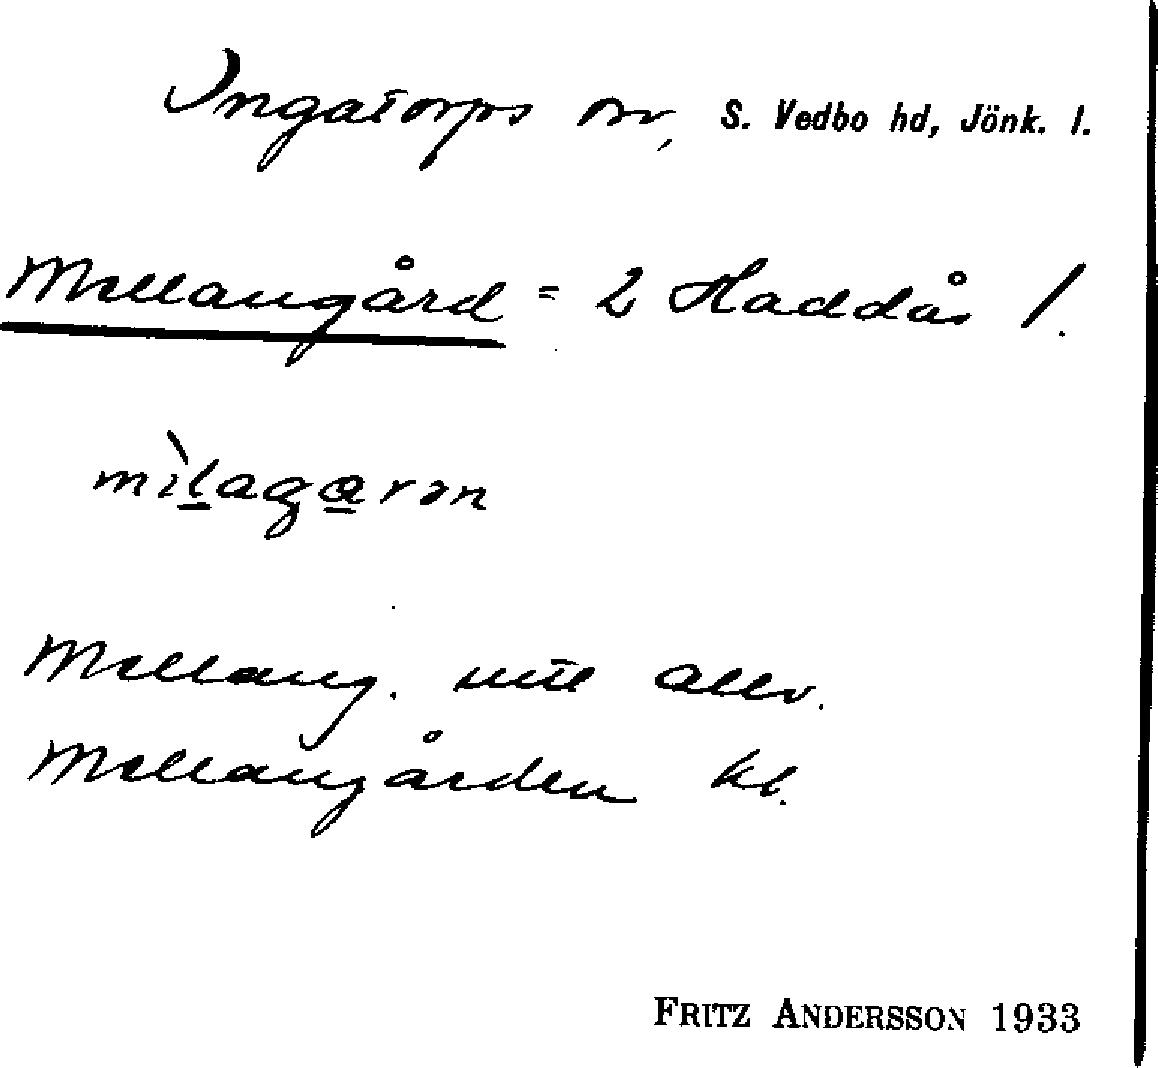 Ingatorps sn, S. Vedbo hd, Jönk. l.
Mellangård = 2 Haddås /.
mìlagarən
Mellang. uttal allm.
Mellangården kl.
FRITZ ANDERSSON 1933